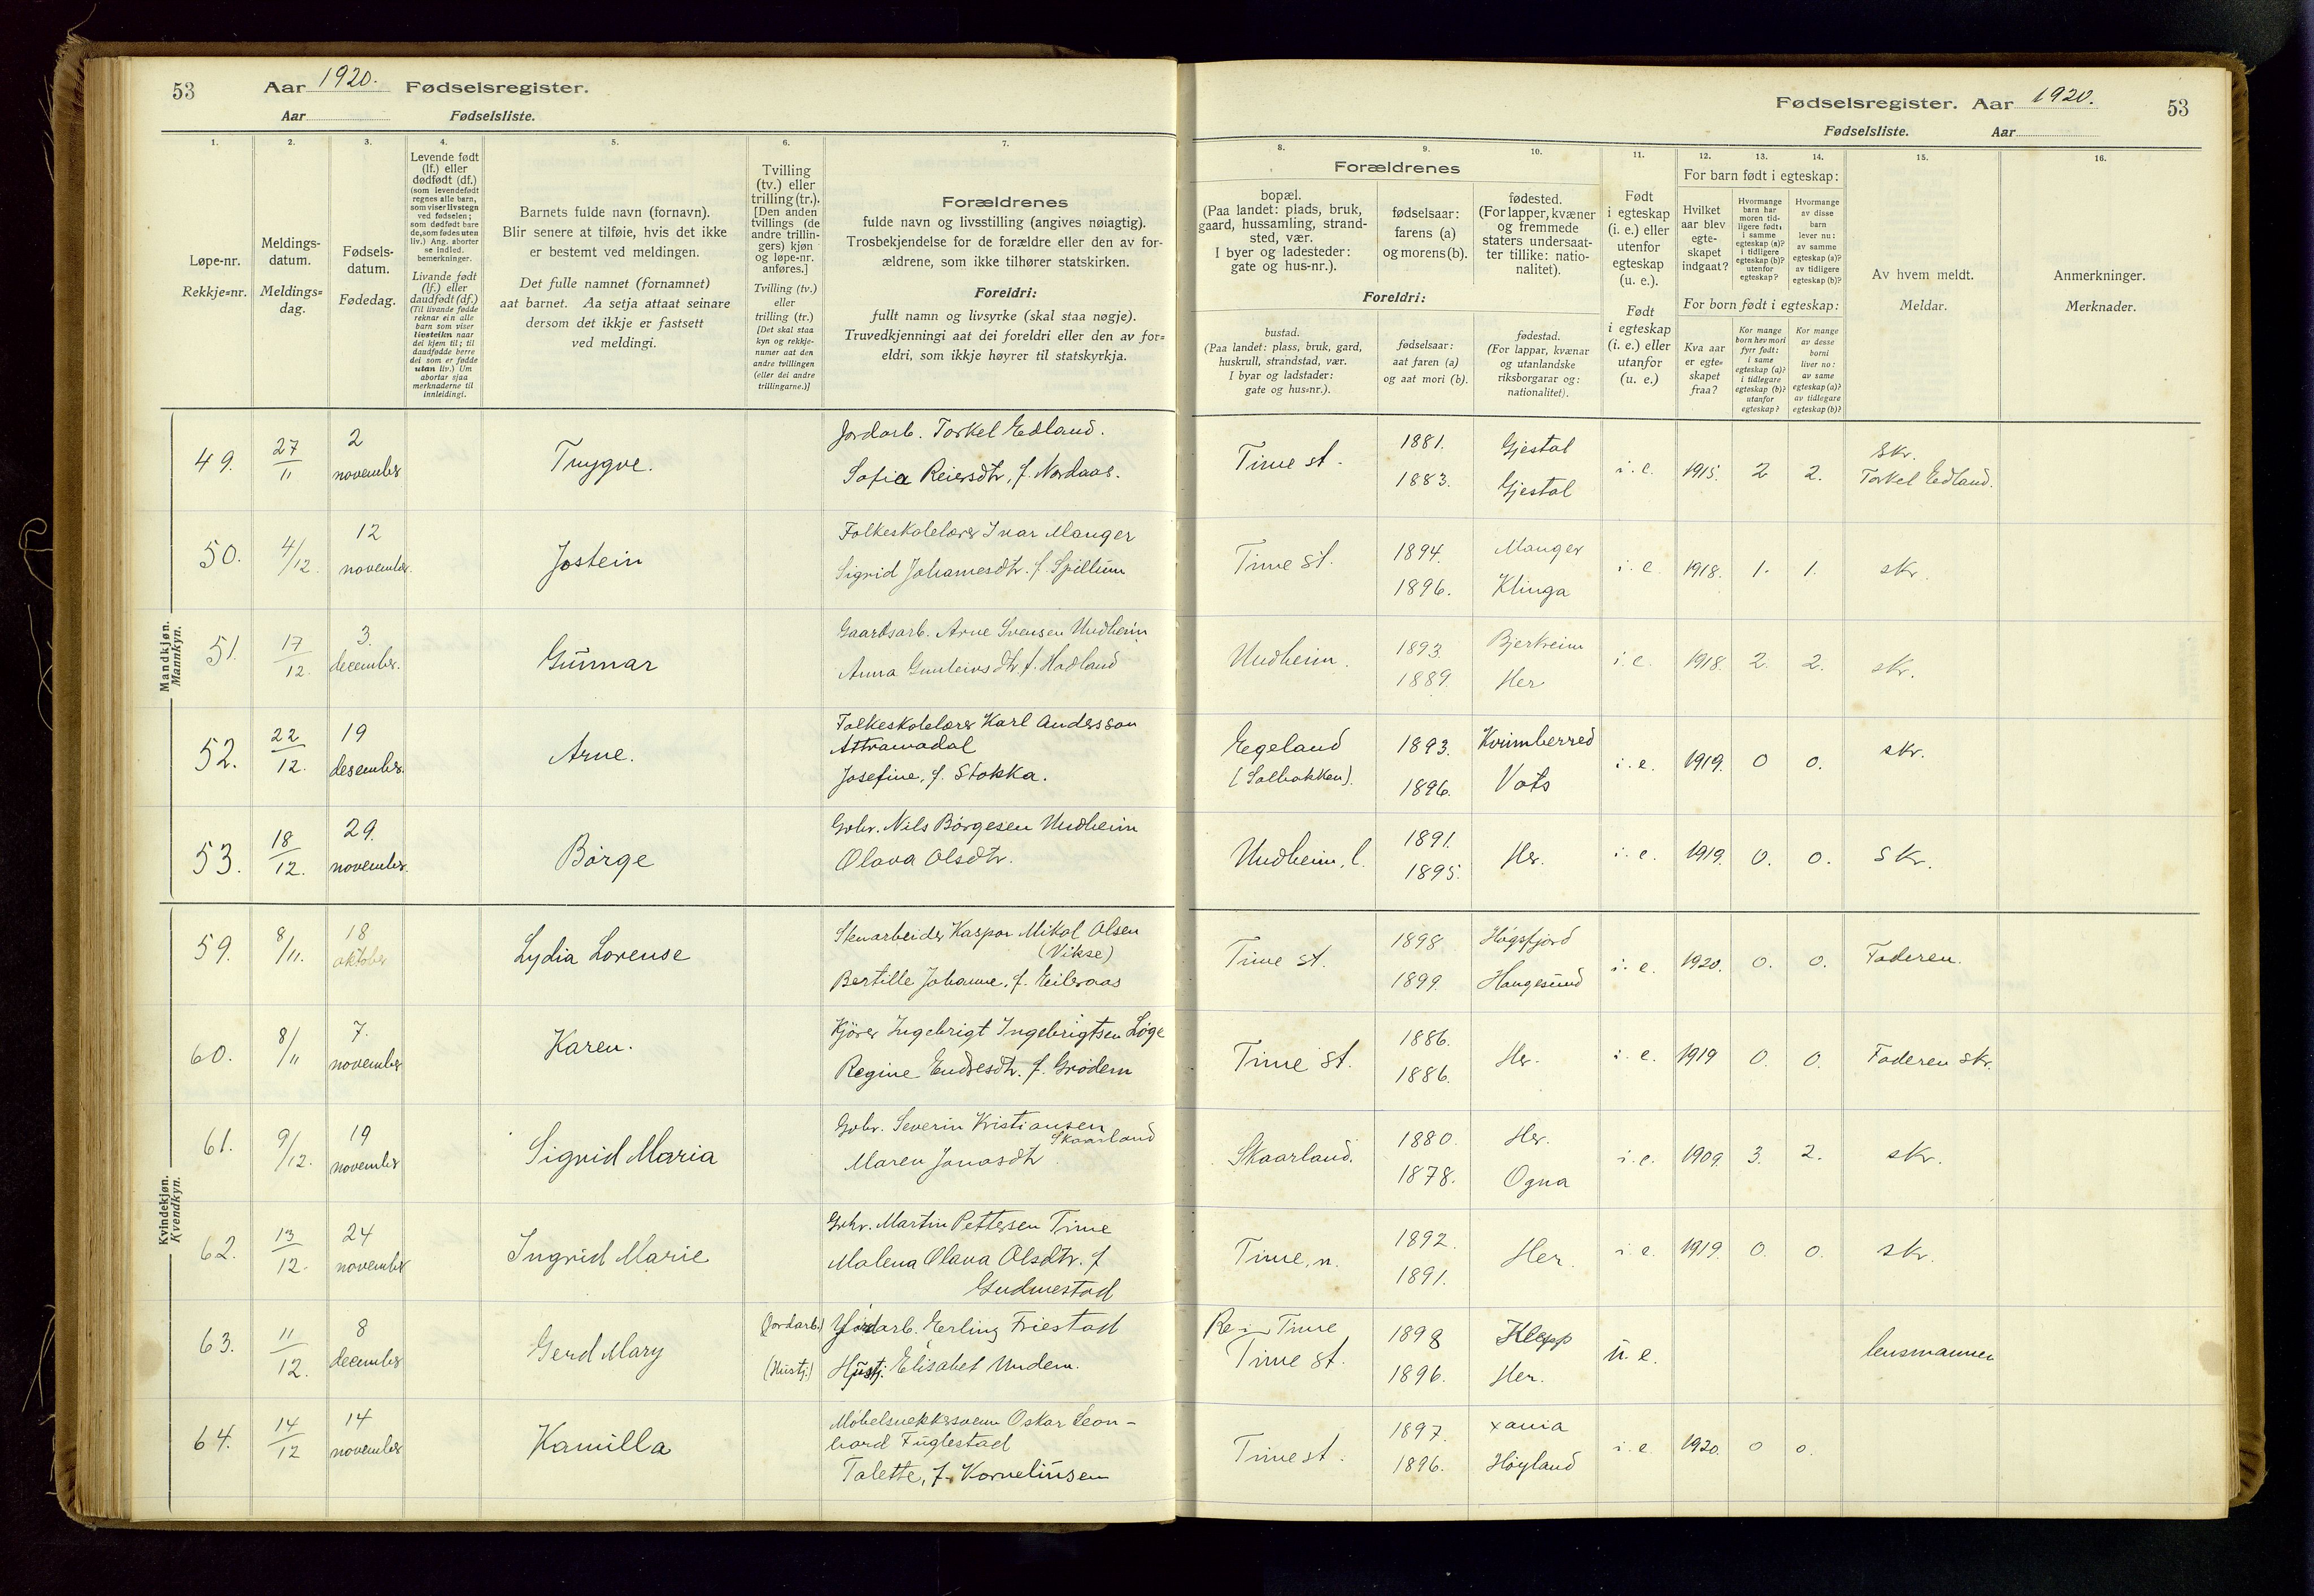 53
Aar 1920. Fødselsregister.
Aar Fødselsliste.
1.
2.
3.
4.
5.
6.
7.
Løpe-nr.
Rekkje=nr.
Meldings-
datum.
Meldings=
dag.
Fødsels-
datum.
Fødedag.
Levende født
(lf.) eller
dødfødt (df.)
(som levendefødt
regnes alle barn,
som viser livstegn
ved fødselen;
som dødfødt bare
de, som fødes uten
liv.) Ang. aborter
se indled.
bemerkninger.
Livande født
(lf.) eller
daudfødt (df.)
(Til livande fødde
reknar ein alle
barn som viser
livsteikn naar
dei kjem til; til
daudfødde berre
dei som er fødde
utan liv.) Um
abortar sjaa
merknaderne til
innleidingi.
Barnets fulde navn (fornavn).
Blir senere at tilføie, hvis det ikke
er bestemt ved meldingen.
Det fulle namnet (fornamnet)
aat barnet. Aa setja attaat seinare
dersom det ikkje er fastsett
ved meldingi.
Tvilling
(tv.) eller
trilling (tr.).
[Den anden
tvillings (de
andre trillin-
gers) kjøn
og løpe-nr.
anføres.]
Tvilling (tv.)
eller
trilling (tr.)
[Det skal staa
kyn og rekkje-
numer aat den
andre tvillingen
(eller dei andre
trillingarne.)]
Forældrenes
fulde navn og livsstilling (angives nøiagtig).
Trosbekjendelse for de forældre eller den av for-
ældrene, som ikke tilhører statskirken.
Foreldri:
fullt namn og livsyrke (skal staa nøgje).
Truvedkjenningi aat dei foreldri eller den av for=
eldri, som ikkje høyrer til statskyrkja.
Mandkjøn.
Mannkyn.
49. 27/11 2 november Trygve. Jordarb. Torkel Edland.
Sofia Reiersdtr, f. Nordaas.
50. 4/12. 12 november Jostein Folkeskolelærer Ivar Manger
Sigrid Johannesdtr. f. Spillum
51. 17/12. 3. december. Gunnar Gaardsarb. Arne Svensen Undheim
Anna Gunleivsdtr. f. Hadland
52. 22/12. 19 desember. Arne. Folkeskolelærer Karl Andersson
Attramadal
Josefine, f. Stokka.
53. 18/12. 29. november. Børge Gbr. Nils Børgesen Undheim
Olava Olsdtr.
Kvindekjøn.
Kvendkyn.
59. 8/11. 18 oktober Lydia Lovense Stenarbeider Kaspar Mikal Olsen
(Vikse)
Bertille Johanne, f. Eileraas
60. 8/11 7. november Karen. Kjører Ingebrigt Ingebrigtsen Løge
Regine Endresdtr. f. Grødem
61. 9/12. 19 november Sigrid Maria Gbr. Severin Kristiansen
Skaarland
Maren Jonasdtr
62. 13/12. 24 november Ingrid Marie Gbr. Martin Pettersen Time
Malena Olava Olsdtr. f
Gudmestad
63. 11/12. 8 december Gerd Mary (Jordarb.) Jordarb. Erling Friestad
(Hustj.) Hustj. Elisabet Undem.
64. 14/12 14 november Kamilla Møbelsnekkersvenn Oskar Leon-
hard Fuglestad
Talette, f. Kornelinsen
Fødselsregister. Aar 1920. 53
Fødselsliste. Aar
8.
9.
10.
11.
12.
13.
14.
15.
16.
Forældrenes
bopæl.
(Paa landet: plads, bruk,
gaard, hussamling, strand-
sted, vær.
I byer og ladesteder:
gate og hus-nr.).
fødselsaar:
farens (a)
og morens (b).
fødested.
(For lapper, kvæner
og fremmede
staters undersaat-
ter tillike: natio-
nalitet).
Foreldri:
bustad.
(Paa landet: plass, bruk, gard,
huskrull, strandstad, vær.
I byar og ladstader:
gate og hus=nr.).
fødselsaar:
aat faren (a)
og aat mori (b).
fødestad.
(For lappar, kvænar
og utanlandske
riksborgarar og:
nationalitet).
Født
i egteskap
(i. e.) eller
utenfor
egteskap
(u. e.).
Født
i egteskap
(i. e.) eller
utanfor
(u. e.)
For barn født i egteskap:
Hvilket
aar blev
egte-
skapet
indgaat?
Hvormange
barn har
moren tid-
ligere født:
i samme
egteskap (a)?
i tidligere
egteskap (b)?
utenfor
egteskap?
Hvormange
av disse
barn
lever nu:
av samme
egteskap (a)?
av tidligere
egteskap (b)?
For born født i egteskap:
Kva aar
er egte-
skapet
fraa?
Kor mange
born hev mori
fyrr født:
i same
egteskap (a)?
i tidlegare
egteskap (b)?
utanfor
egteskap?
Kor mange
av desse
borni
liver no:
av same
egteskap (a)?
av tidlegare
egteskap (b)?
Av hvem meldt.
Meldar.
Anmerkninger.
Merknader.
Time st. 1881. Gjestal i. e. 1915. 2 2. Skr.
1883. Gjestal Torkel Edland.
Time St. 1894. Manger i. e. 1918. 1. 1. skr.
1896. Klinga
Undheim. 1893. Bjerkreim i. e. 1918. 2. 2. skr.
1889. Her
Egeland 1893. Kvinnherred i. e. 1919. 0 0. skr.
(Solbakken). 1896. Vats
Undheim, l. 1891. Her. i. e. 1919. 0. 0. Skr.
1895.
Time st. 1898 Høgsfjord i. e. 1920. 0. 0. Faderen.
1899. Haugesund
Time St. 1886. Her. i. e. 1919 0. 0. Faderen skr.
1886.
Skaarland. 1880. Her. i. e. 1909. 3. 2. skr.
1878. Ogna
Time, n. 1892. Her. i. e. 1919. 0. 0. skr.
1891.
Time 1898 Klepp u. e. lensmannen
Time st. 1896. Her.
Time st. 1897. xania i. e. 1920. 0 0.
1896. Høyland